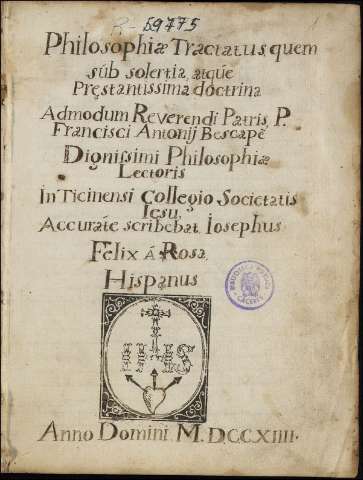 R- 59775
Philosophiæ Tractatus, quem
súb solertia, atqúe
Pręstantissima doctrina
Admodum Reverendi Patris, P.
Francisci Antonij Bescapè
Dignissimi Philosophiæ
Lectoris
In Ticinensi Collegio Societatis
Iesu,
Accurate scribebat Iosephus
Felix á Rosa,
Hispanus
IHS
Anno Domini. M.D.CCXIIII.